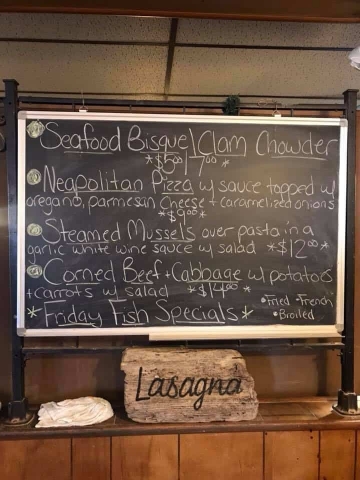 Seafood Bisque | Clam Chowder
*$5.00 | 7.00 *
Neapolitan Pizza w/ sauce topped w/
oregano, parmesan cheese + caramelized onions
*$9.00*
Steamed Mussels over pasta in a
garlic white wine sauce w/ salad *$12.00*
Corned Beef + Cabbage w/ potatoes
+ carrots w/ salad *$14.00*
*Friday Fish Specials*
•Fried •French
•Broiled
Lasagna